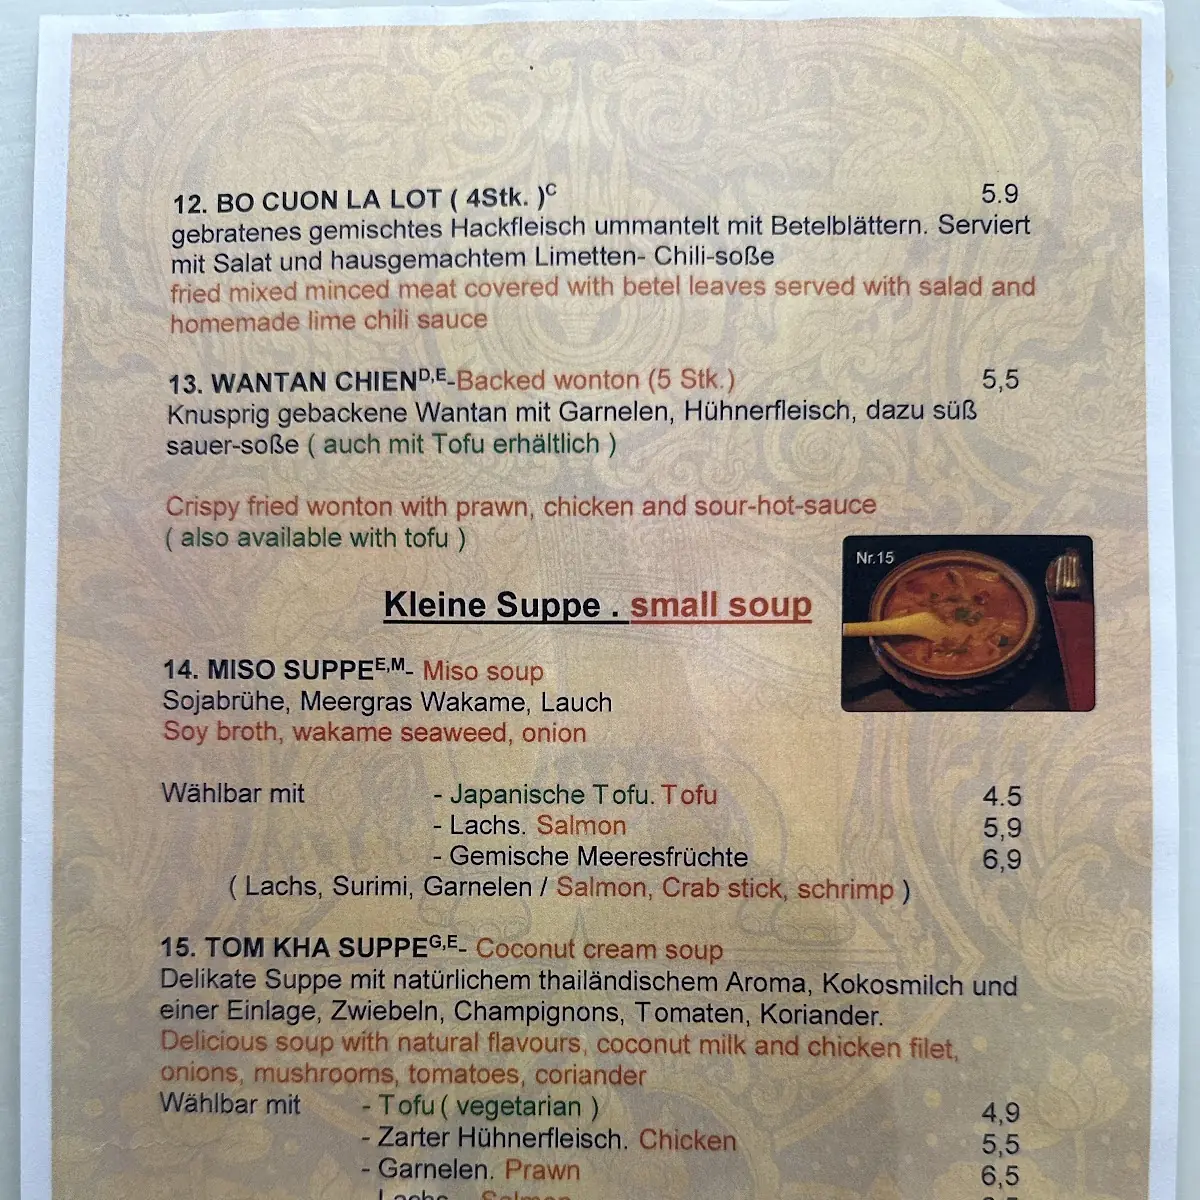 12. BO CUON LA LOT ( 4Stk. )C 5.9
gebratenes gemischtes Hackfleisch ummantelt mit Betelblättern. Serviert
mit Salat und hausgemachtem Limetten- Chili-soße
fried mixed minced meat covered with betel leaves served with salad and
homemade lime chili sauce
13. WANTAN CHIEND,E-Backed wonton (5 Stk.) 5,5
Knusprig gebackene Wantan mit Garnelen, Hühnerfleisch, dazu süß
sauer-soße ( auch mit Tofu erhältlich )
Crispy fried wonton with prawn, chicken and sour-hot-sauce
( also available with tofu )
Nr.15
Kleine Suppe . small soup
14. MISO SUPPEE,M- Miso soup
Sojabrühe, Meergras Wakame, Lauch
Soy broth, wakame seaweed, onion
Wählbar mit - Japanische Tofu. Tofu 4.5
- Lachs. Salmon 5,9
- Gemische Meeresfrüchte 6,9
( Lachs, Surimi, Garnelen / Salmon, Crab stick, schrimp )
15. TOM KHA SUPPEG,E- Coconut cream soup
Delikate Suppe mit natürlichem thailändischem Aroma, Kokosmilch und
einer Einlage, Zwiebeln, Champignons, Tomaten, Koriander.
Delicious soup with natural flavours, coconut milk and chicken filet,
onions, mushrooms, tomatoes, coriander
Wählbar mit - Tofu ( vegetarian ) 4,9
- Zarter Hühnerfleisch. Chicken 5,5
- Garnelen. Prawn 6,5
- Lachs. Salmon